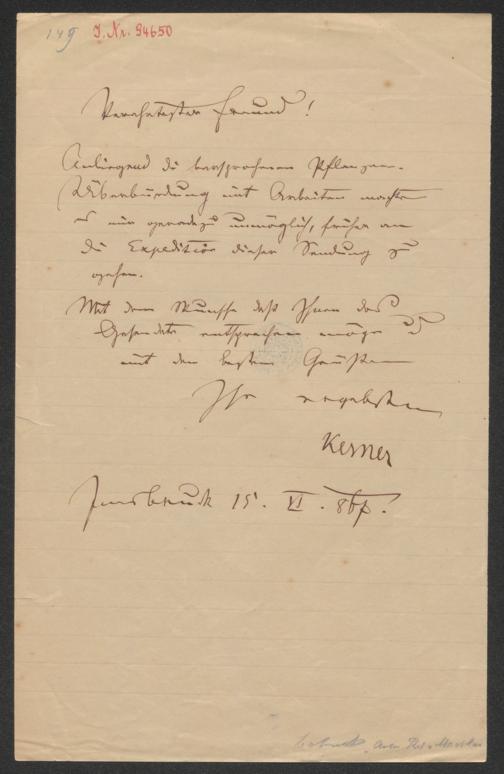 149 J. Nr. 94650
Verehrtester Freund!
Anliegend die versprochenen Pflanzen.
Überbürdung mit Arbeiten machte
es mir geradezu unmöglich, früher an
die Expedition dieser Sendung zu
gehen.
Mit dem Wunsche daß Ihnen das
Gesendete entsprechen möge und
mit den besten Grüßen
Ihr ergebenster
Kerner
Innsbruck 15. VI.